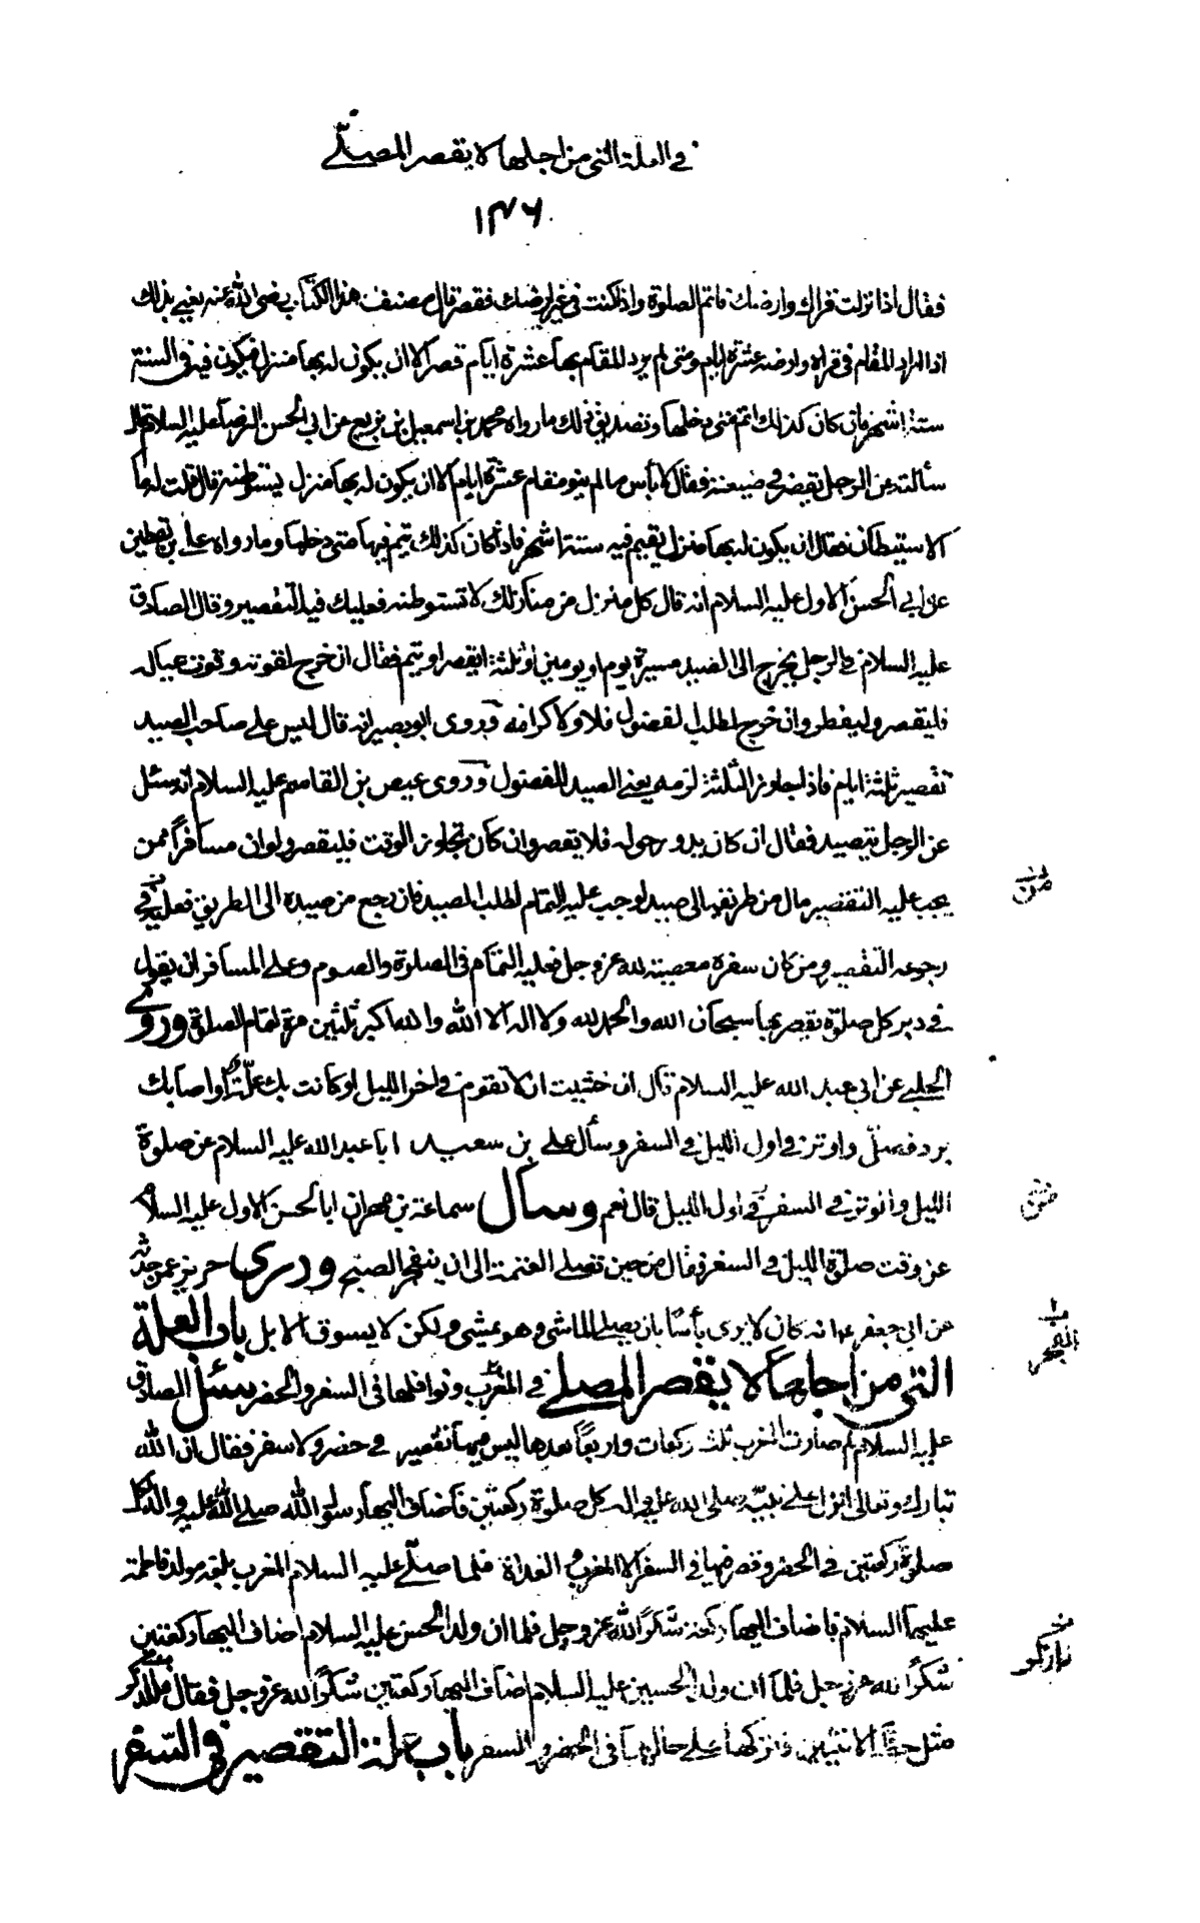 في العلة التي من اجلها لا يقصر المصلّي
١٣٦
فقال اذا نزلت قراك وارضك فاتم الصلوة واذا كنت في غير ارضك فقصر قال مصنف هذا الكتاب رضى الله عنه يعني بذلك
اذا اراد المقام في قراه وارضه عشرة ايام ومتى لم يرد المقام بها عشرة ايام قصر الا ان يكون له بها منزل فيكون فيه في السنة
ستة اشهر فان كان كذلك اتم متى دخلها وتصديق ذلك ما رواه محمد بن اسمعيل بن بزيع عن ابى الحسن الرضا عليه السلام قال
سألته عن الرجل يقصر في ضيعته فقال لا بأس ما لم ينو مقام عشرة ايام الا ان يكون له بها منزل يستوطنه قال قلت له ما
الاستيطان فقال ان يكون له بها منزل يقيم فيه ستة اشهر فاذا كان كذلك يتم فيها متى دخلها وما رواه علي بن يقطين
عن ابى الحسن الاول عليه السلام انه قال كل منزل من منازلك لا تستوطنه فعليك فيه التقصير وقال الصادق
عليه السلام في الرجل يخرج الى الصيد مسيرة يوم او يومين او ثلثة ايقصر او يتم فقال ان خرج لقوته وقوت عياله
فليقصر وليفطر وان خرج لطلب الفضول فلا ولا كرامة وروى ابو بصير انه قال ليس على صاحب الصيد
تقصير ثلثة ايام فاذا جاوز الثلثة لزمه يعني الصيد للفضول وروى عيص بن القاسم عليه السلام انه سئل
عن الرجل يتصيد فقال ان كان يدور حوله فلا يقصر وان كان تجاوز الوقت فليقصر ولو ان مسافراً ممن
يجب عليه التقصير مال من طريقه الى صيد لوجب عليه التمام لطلب الصيد فان رجع من صيده الى الطريق فعليه في
رجوعه التقصير ومن كان سفره معصية لله عز وجل فعليه التمام في الصلوة والصوم وعلى المسافر ان يقول
في دبر كل صلوة يقصر بها سبحان الله والحمد لله ولا اله الا الله والله اكبر ثلثين مرة لتمام الصلوة وروى
الحلبي عن ابى عبد الله عليه السلام قال ان خشيت ان لا تقوم في اخر الليل او كانت بك علّة او اصابك
برد فصلّ واوتر في اول الليل في السفر وسأل علي بن سعيد ابا عبد الله عليه السلام عن صلوة
الليل والوتر في السفر في اول الليل قال نعم وسأل سماعة بن مهران ابا الحسن الاول عليه السلام
عن وقت صلوة الليل في السفر فقال من حين تصلي العتمة الى ان ينفجر الصبح وروى حريز عمن حدثه
عن ابى جعفر ع انه كان لا يرى بأسًا بان يصلي الماشي وهو يمشي ولكن لا يسوق الابل باب العلة
التي من اجلها لا يقصر المصلي في المغرب ونوافلها في السفر والحضر سئل الصادق
عليه السلام لم صارت المغرب ثلث ركعات واربعًا بعدها ليس فيها تقصير في حضر ولا سفر فقال ان الله
تبارك وتعالى انزل على نبيّه صلى الله عليه واله كل صلوة ركعتين فاضاف اليها رسول الله صلى الله عليه واله لكل
صلوة ركعتين في الحضر وقصر فيها في السفر الا المغرب والغداة فلما صلّى عليه السلام المغرب بلغه مولد فاطمة
عليها السلام فاضاف اليها ركعة شكرًا لله عز وجل فلما ان ولد الحسن عليه السلام اضاف اليها ركعتين
شكرًا لله عز وجل فلما ان ولد الحسين عليه السلام اضاف اليها ركعتين شكرًا لله عز وجل فقال للذكر
مثل حظ الانثيين وتركها على حالها في الحضر والسفر باب علة التقصير في السفر
من
الفجر